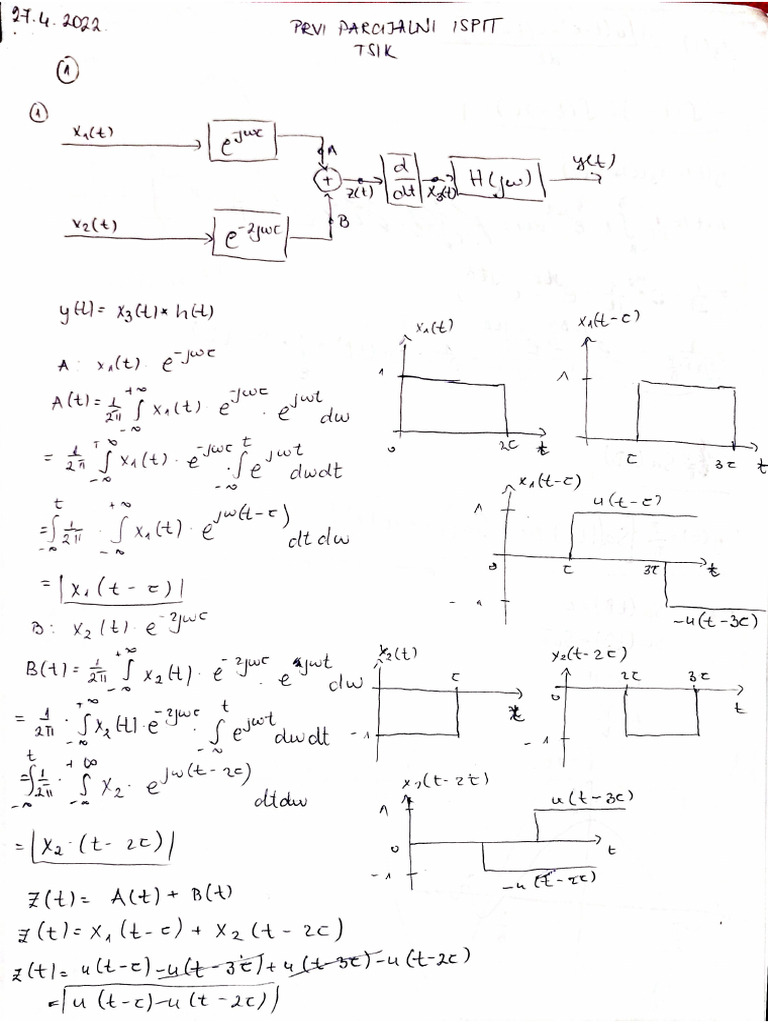 27.4.2022.
PRVI PARCIJALNI ISPIT
TSIK
①
①
x₁(t)
e^{jωτ}
A
+
z(t)
d/dt
x₃(t)
H(jω)
y(t)
x₂(t)
e^{-2jωτ}
B
y(t) = x₃(t) * h(t)
A: x₁(t) · e^{-jωτ}
A(t) = 1/2π ∫_{-∞}^{+∞} x₁(t) e^{-jωτ} · e^{jωt} dω
= 1/2π ∫_{-∞}^{+∞} x₁(t) · e^{-jωτ} · ∫_{-∞}^{t} e^{jωt} dωdt
= ∫_{-∞}^{t} 1/2π · ∫_{-∞}^{+∞} x₁(t) · e^{jω(t-τ)} dt dω
= |x₁(t-τ)|
B: x₂(t) · e^{-2jωτ}
B(t) = 1/2π ∫_{-∞}^{+∞} x₂(t) · e^{-2jωτ} · e^{jωt} dω
= 1/2π · ∫_{-∞}^{+∞} x₂(t) · e^{-2jωτ} · ∫_{-∞}^{t} e^{jωt} dωdt
= ∫_{-∞}^{t} 1/2π · ∫_{-∞}^{+∞} x₂ · e^{jω(t-2τ)} dtdω
= |x₂·(t-2τ)|
z(t) = A(t) + B(t)
z(t) = x₁(t-τ) + x₂(t-2τ)
z(t) = u(t-τ) - u(t-3τ) + u(t-3τ) - u(t-2τ)
= |u(t-τ) - u(t-2τ)|
x₁(t)
1
0
2τ
t
x₁(t-τ)
1
τ
3τ
t
x₁(t-τ)
1
u(t-τ)
0
τ
3τ
t
-1
-u(t-3τ)
x₂(t)
0
τ
t
-1
x₂(t-2τ)
0
2τ
3τ
t
-1
x₂(t-2τ)
1
u(t-3τ)
0
t
-1
-u(t-2τ)